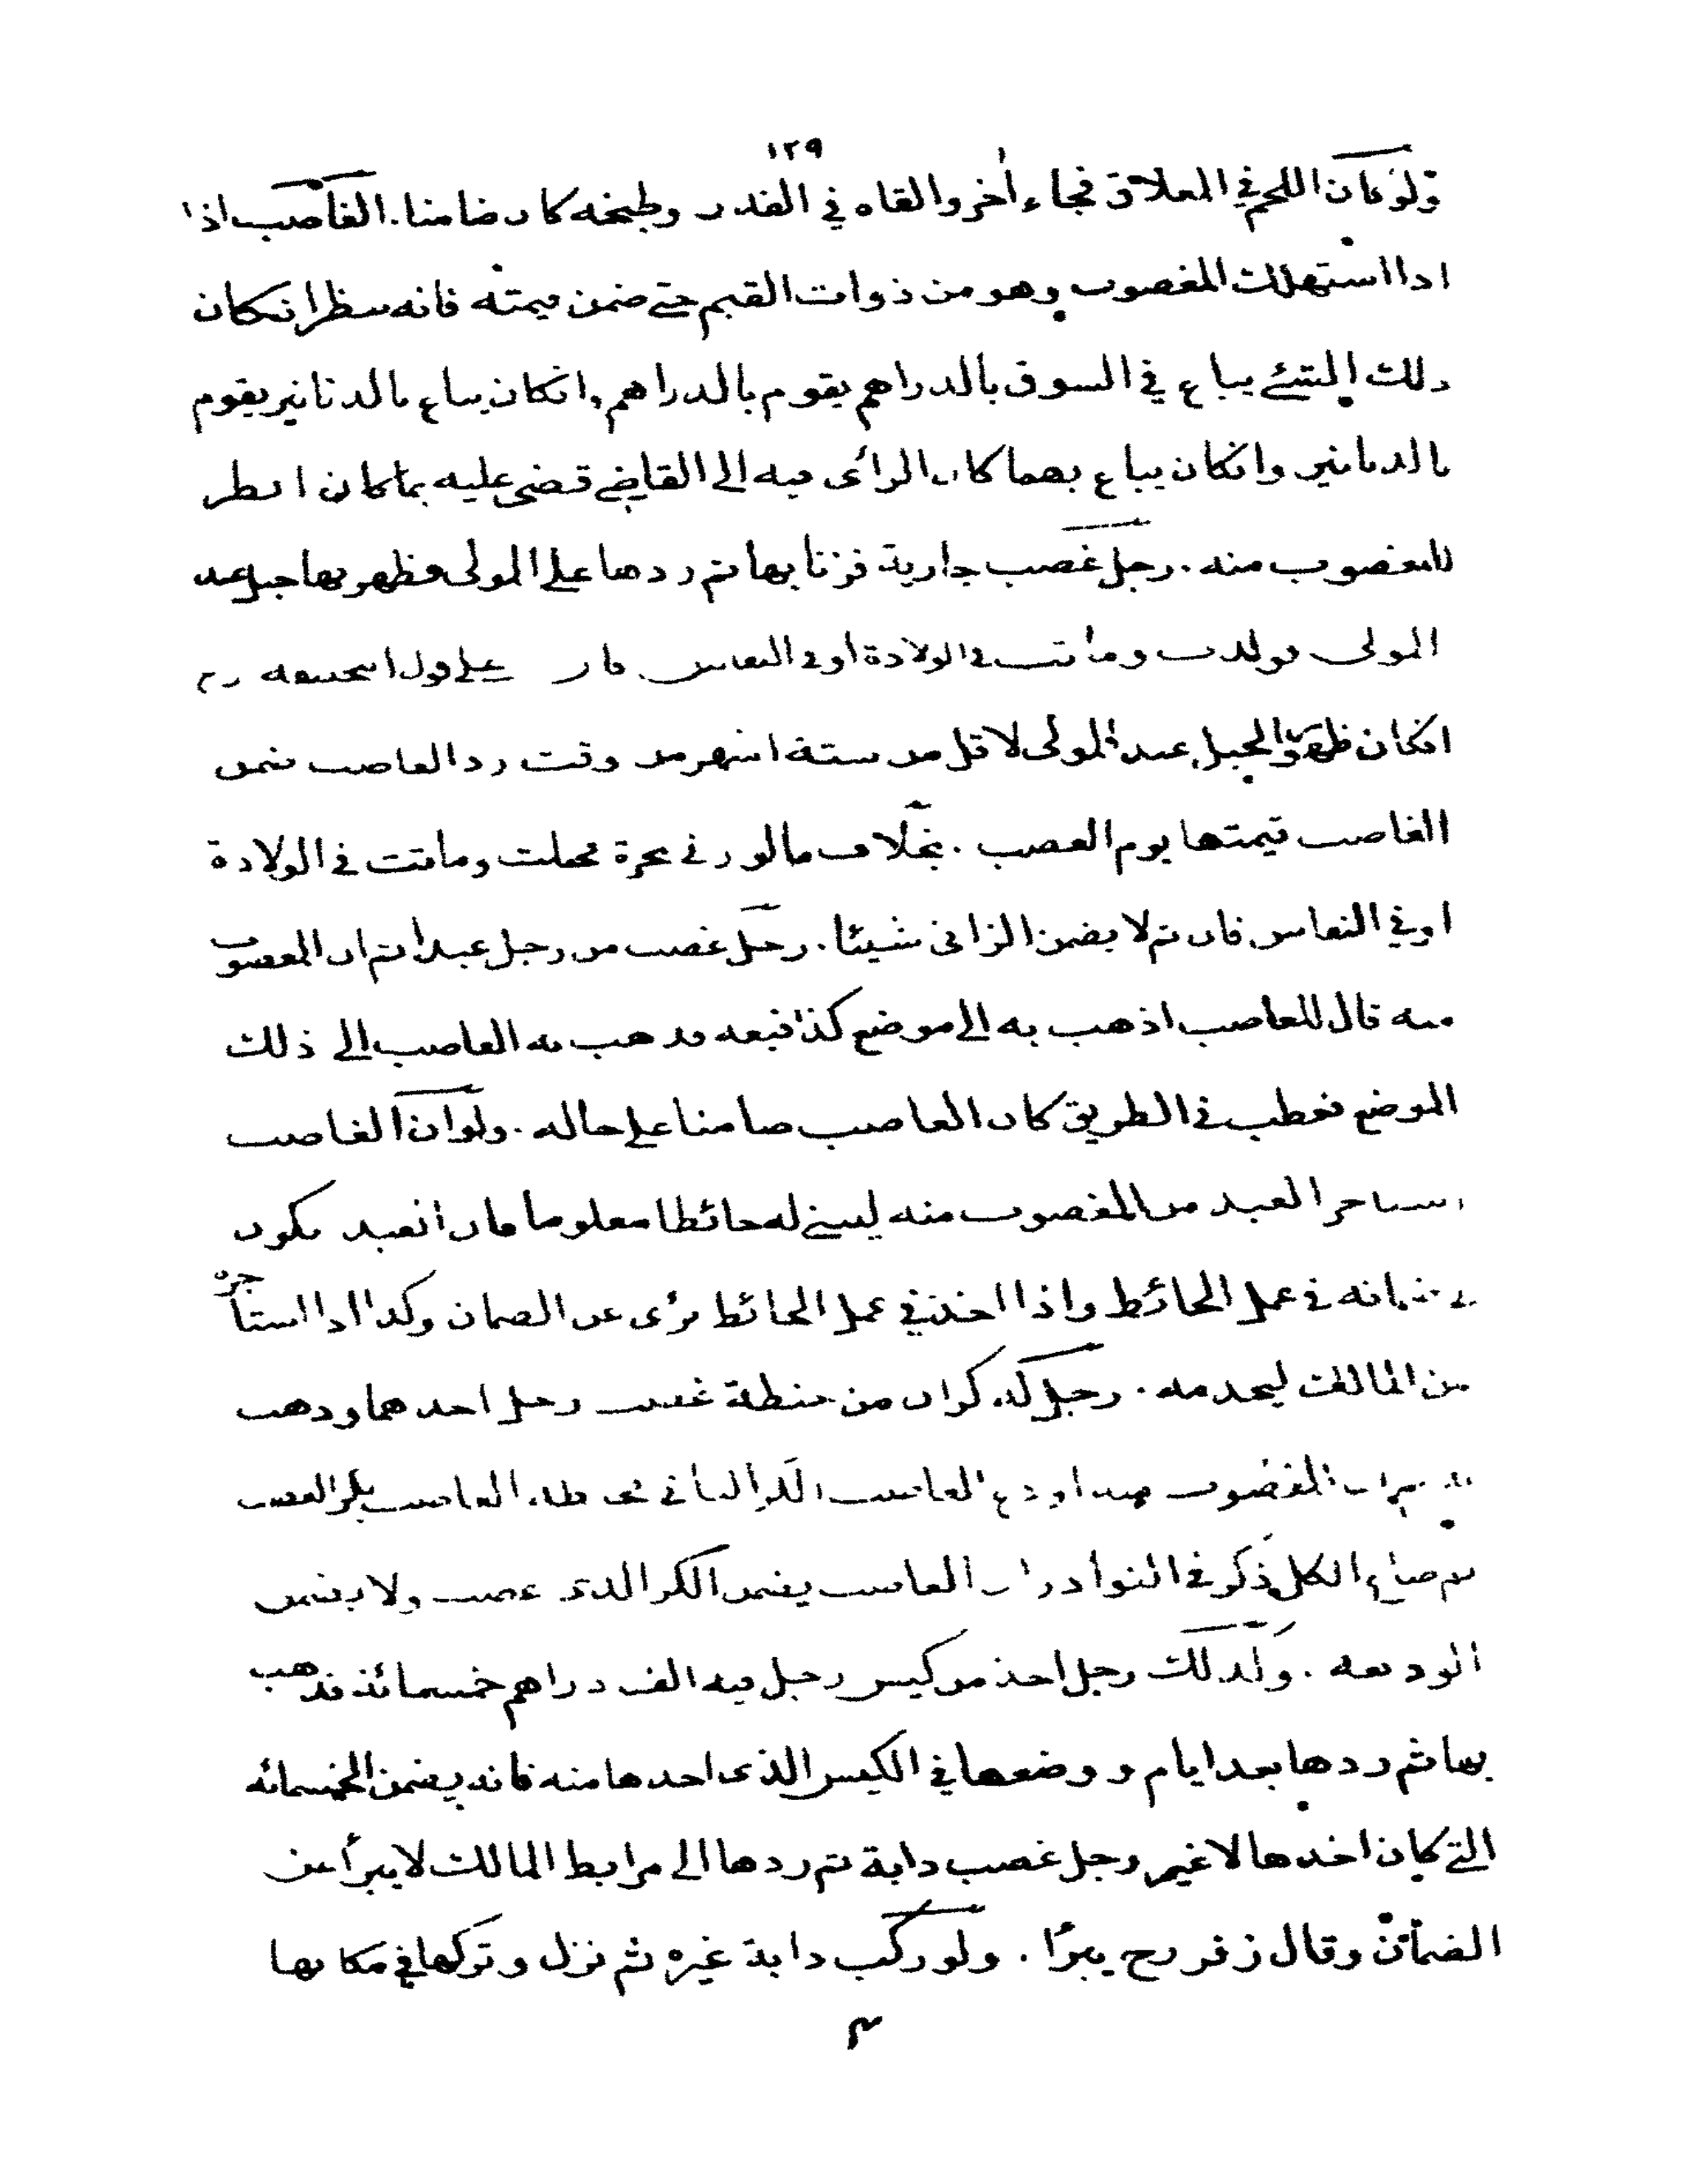 ١٢٩
ولو كان اللحم في المعلاق فجاء أخر والقاه في القدر وطبخه كان ضامنا. الغاصب اذا
اذا استهلك المغصوب وهو من ذوات القيم حتى ضمن قيمته فانه ينظر انكان
ذلك الشئ يباع في السوق بالدراهم يقوم بالدراهم وانكان يباع بالدنانير يقوم
بالدنانير وانكان يباع بهما كان الرائى فيه الى القاضى قضى عليه بما كان انظر
للمغصوب منه. رجل غصب جارية فزنا بها ثم ردها على المولى فظهر بها حبل عند
المولى فولدت وماتت في الولادة أو في النفاس على قول ابيحنيفه رح
انكان ظهور الحبل عند المولى لاقل من ستة اشهر من وقت رد الغاصب ضمن
الغاصب قيمتها يوم الغصب. بخلاف مالو زنى بحرة فحملت وماتت في الولادة
او في النفاس فان ثم لا يضمن الزانى شيئا. رجل غصب من رجل عبدا ثم ان المغصوب
منه قال للغاصب اذهب به الى موضع كذا فبعه فذهب به الغاصب الى ذلك
الموضع فعطب في الطريق كان الغاصب ضامنا على حاله. ولو ان الغاصب
استاجر العبد من المغصوب منه ليبنى له حائطا معلوما فان العبد يكون
في ضمانه في عمل الحائط واذا اخذ في عمل الحائط برئ عن الضمان وكذا اذا استأجره
من المالك ليخدمه. رجل له كران من حنطة غصب رجل احدهما وذهب
المغصوب منه اودع الغاصب الكر الثانى فخلطه الغاصب بكر الغصب
ثم ضاع الكل ذكر في النوادر ان الغاصب يضمن الكر الذى غصب ولا يضمن
الوديعه. وكذلك رجل اخذ من كيس رجل فيه الف دراهم خمسمائة فذهب
بها ثم ردها بعد ايام و وضعها في الكيس الذى اخذها منه فانه يضمن الخمسمائه
التى كان اخذها لا غير رجل غصب دابة ثم ردها الى مرابط المالك لا يبرأ عن
الضمان وقال زفر رح يبرأ. ولو ركب دابة غيره ثم نزل وتركها في مكانها